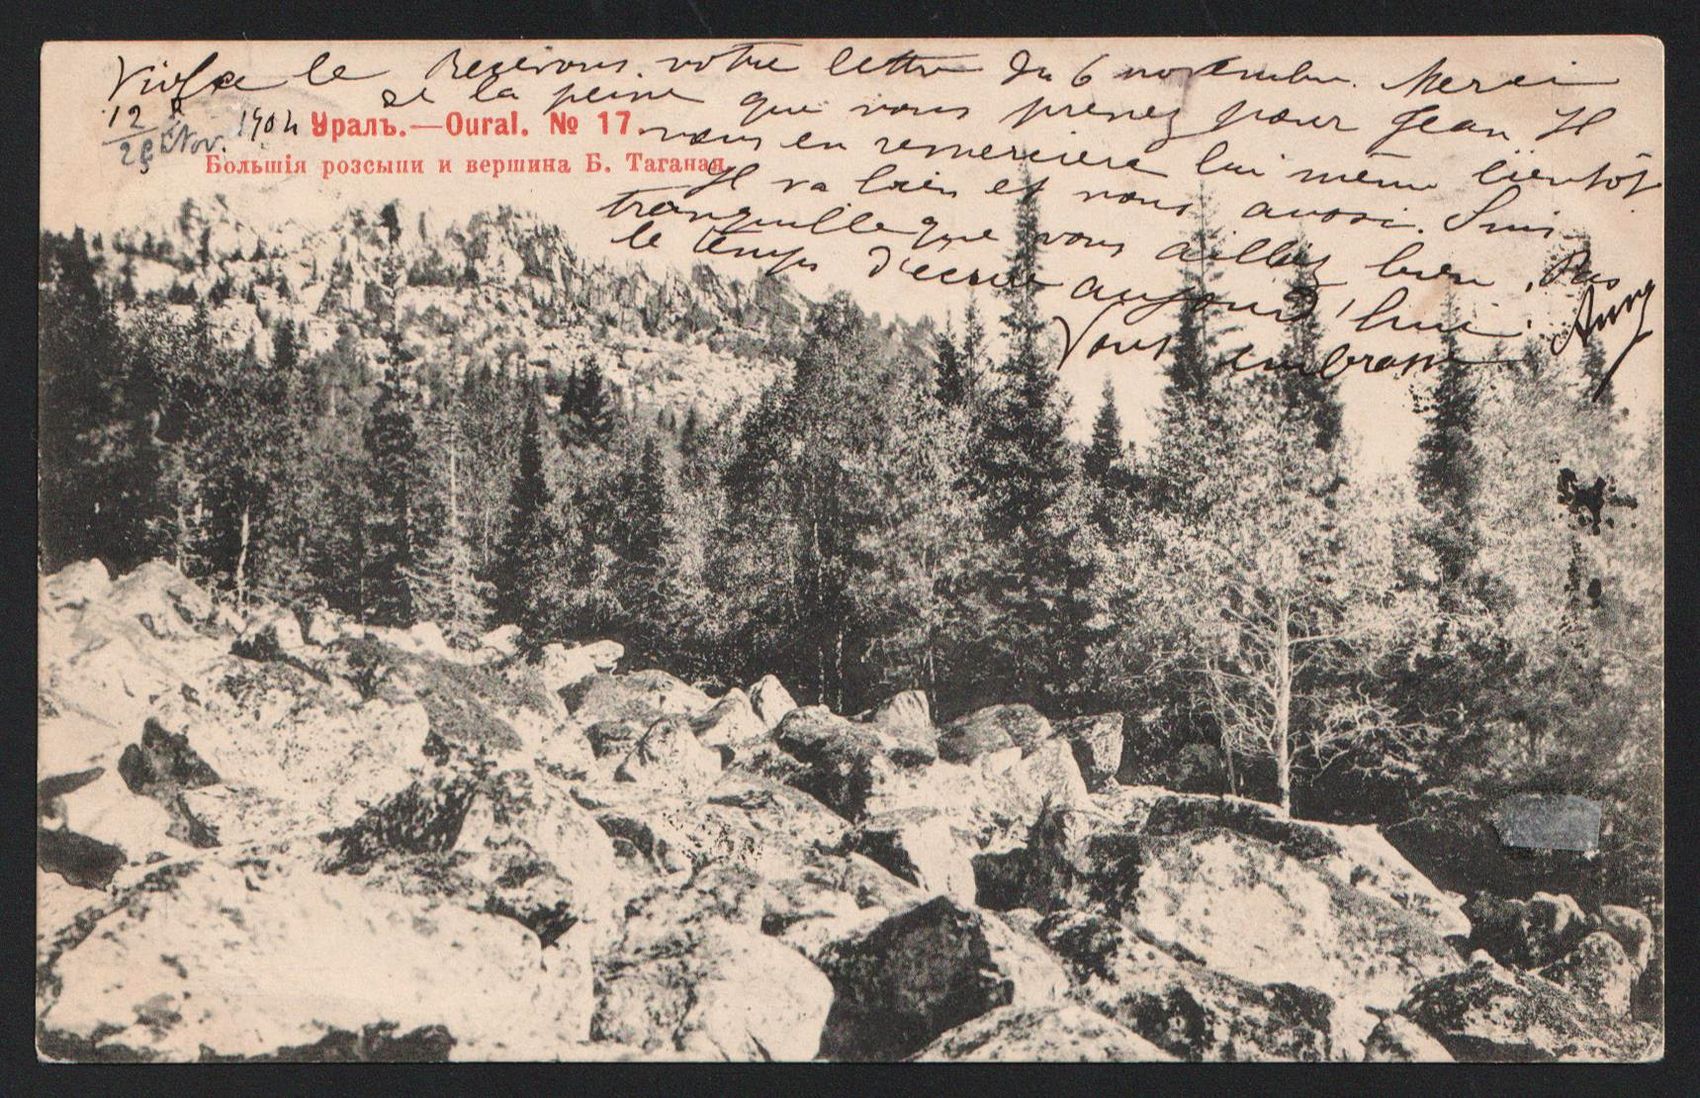 le Recevons votre lettre du 6 novembre. Merci
de la peine que vous prenez pour Jean Il
12/25 Nov. 1904
Уралъ.—Oural. № 17.
vous en remerciera lui même bientôt
Большія розсыпи и вершина Б. Таганая.
Il va bien et nous aussi. Suis
tranquille que vous alliez bien. Pas
le temps d'écrire aujourd'hui.
Vous embrasse